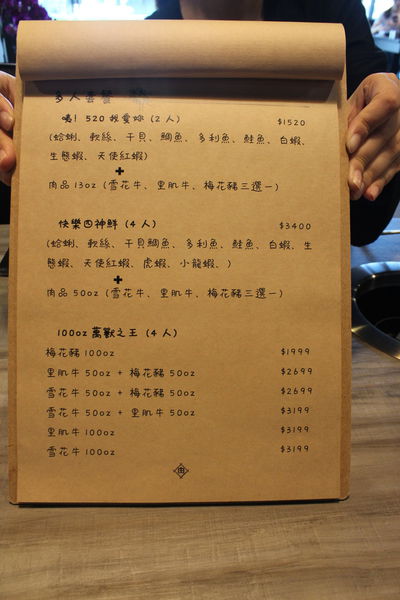 多人套餐
嗨! 520 我愛妳 (2 人) $1520
(蛤蜊、軟絲、干貝、鯛魚、多利魚、鮭魚、白蝦、
生態蝦、天使紅蝦)
+
肉品 13oz (雪花牛、里肌牛、梅花豬三選一)
快樂四神鮮 (4 人) $3400
(蛤蜊、軟絲、干貝鯛魚、多利魚、鮭魚、白蝦、生
態蝦、天使紅蝦、虎蝦、小龍蝦、)
+
肉品 50oz (雪花牛、里肌牛、梅花豬三選一)
100oz 萬獸之王 (4 人)
梅花豬 100oz $1999
里肌牛 50oz + 梅花豬 50oz $2699
雪花牛 50oz + 梅花豬 50oz $2699
雪花牛 50oz + 里肌牛 50oz $3199
里肌牛 100oz $3199
雪花牛 100oz $3199
肉